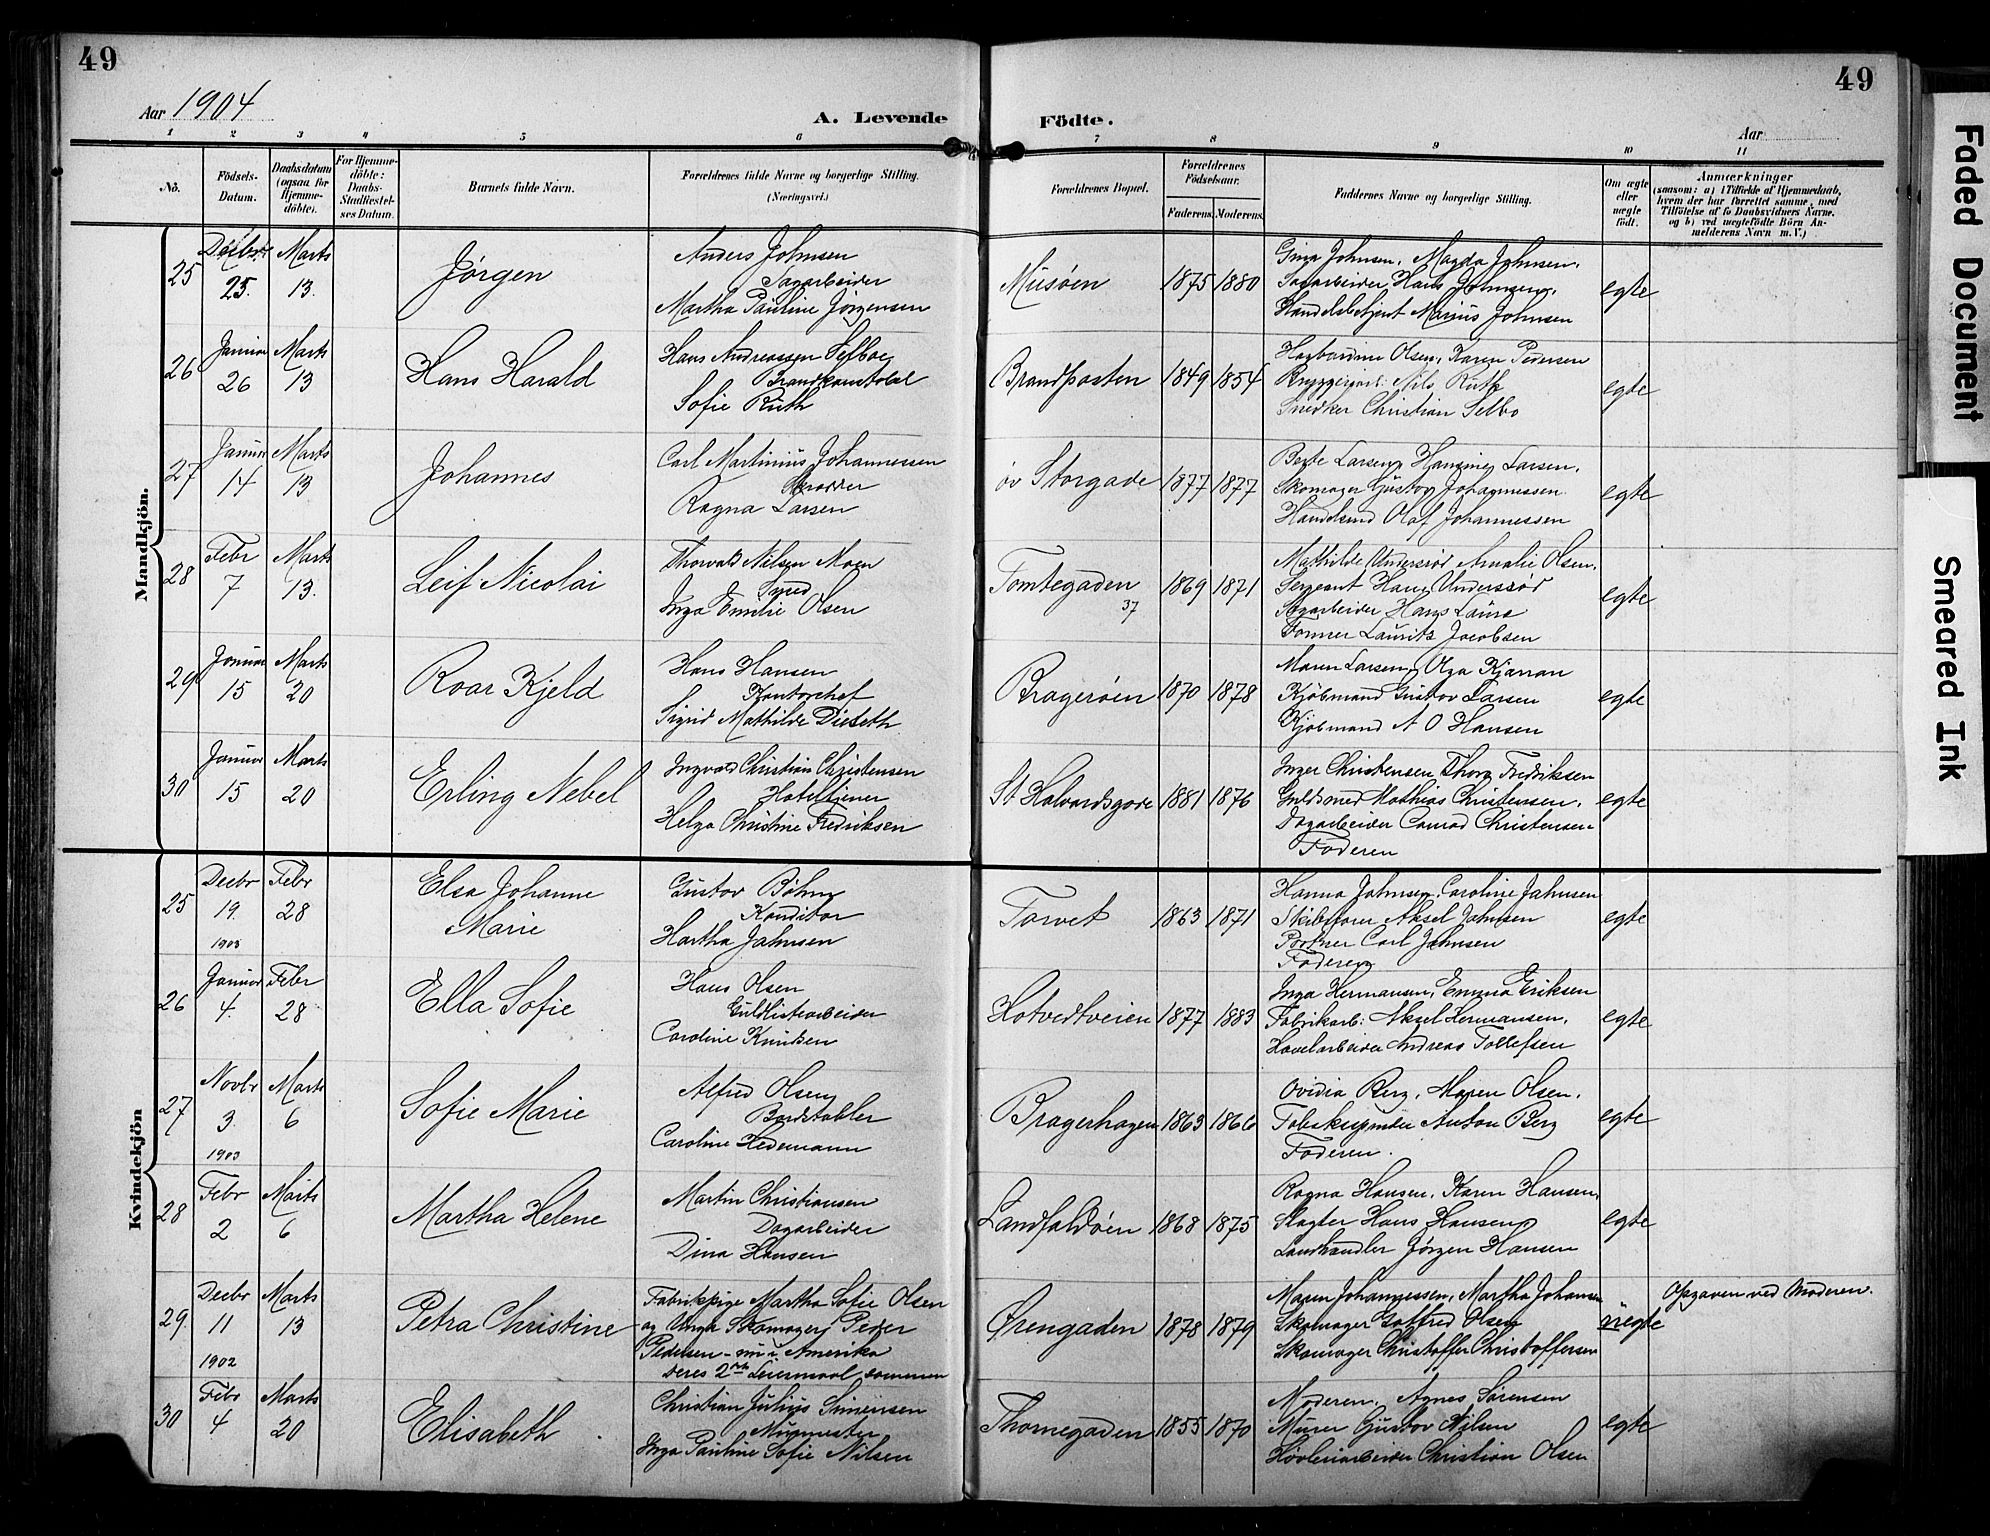 49
49
Aar 1904
A. Levende
Födte.
Aar
1 2 3 4 5 6 7 8 9 10 11
No.
Födsels-Datum.
Daabsdatum (ogsaa for Hjemme-döbte).
For Hjemme-döbte: Daabs-Stadfæstel-ses Datum.
Barnets fulde Navn.
Forældrenes fulde Navne og borgerlige Stilling. (Næringsvei.)
Forældrenes Bopæl.
Forældrenes Födselsaar.
Faderens. Moderens.
Faddernes Navne og borgerlige Stilling.
Om ægte eller uægte født.
Anmærkninger
(saasom: a) i Tilfælde af Hjemmedaab,
hvem der har forrettet samme, med
Tilföielse af to Daabsvidners Navne,
og b) ved uegtefödte Börn An-
melderens Navn m. V.)
Mandkjön.
25
Decbr 25.
Marts 13.
Jørgen
Anders Johnsen
Sagarbeider
Martha Pauline Jørgensen
Musøen
1875 1880
Gina Johnsen, Magda Johnsen,
Sagarbeider Hans Johnsen,
Handelsbetjent Marius Johnsen
egte
26
Januar 26
Marts 13
Hans Harald
Hans Andreassen Selboe
Brandkonstabel
Sofie Ruth
Brandposten
1849 1854
Hagbardine Olsen, Karen Pedersen
Bryggeriarb: Nils Ruth
Snedker Christian Selbo
egte
27
Januar 14
Marts 13
Johannes
Carl Martinius Johannessen
Skrædder
Ragna Larsen
øv Storgade
1877 1877
Berte Larsen, Hansine Larsen,
Skomager Gustav Johannessen
Handelsmd Olaf Johannessen
egte
28
Febr 7
Marts 13.
Leif Nicolai
Thorvald Nilsen Moen
Smed
Inga Emilie Olsen
Tomtegaden 37
1869 1871
Mathilde Underssrød Amalie Olsen,
Sergeant Hans Underssrød
Sagarbeider Hans
Former Lauritz Jacobsen
egte
29
Januar 15
Marts 20
Roar Kjeld
Hans Hansen
Kontorchef
Sigrid Mathilde
Bragerøen
1870 1878
Maren Larsen, Olga
Kjøbmand Gustav Larsen
Kjøbmand A O Hansen
egte
30
Januar 15
Marts 20
Erling Nebel
Ingvald Christian Christensen
Hoteltjener
Helga Christine Fredriksen
St Halvardsgade
1881 1876
Inger Christensen Thora Fredriksen
Guldsmed Mathias Christensen,
Dagarbeider Conrad Christensen
Faderen
egte
Kvindekjön
25
Decbr 19. 1903
Febr 28
Elsa Johanne
Marie
Gustav Bøhm
Konditor
Hartha Jahnsen
Torvet
1863 1871
Hanna Jahnsen, Caroline Jahnsen
Aksel Jahnsen
Portner Carl Jahnsen
Faderen
egte
26
Januar 4.
Febr 28
Ella Sofie
Hans Olsen
Guldlistearbeider
Caroline Knudsen
Hotvedtveien
1877 1883
Inga Hermansen, Emma Eriksen
Fabrikarb: Aksel Hermansen,
Høvelarbeider Andreas Tollefsen
egte
27
Novbr 3. 1903
Marts 6
Sofie Marie
Alfred Olsen
Bordstabler
Caroline Hedemann
Bragerhagen
1863 1866
Ovidia Berg, Maren Olsen,
Anton Berg
Faderen.
egte
28
Febr 2
Marts 6
Martha Helene
Martin Christiansen
Dagarbeider
Dina Hansen
Landfaldøen
1868 1875
Ragna Hansen, Karen Hansen,
Slagter Hans Hansen
Landhandler Jørgen Hansen
egte
29.
Decbr 11 1902
Marts 13
Petra Christine
Fabrikpige Martha Sofie Olsen
og Ungk Skomager Peder
Pedersen – nu i Amerika
deres 2det Leiermaal sammen
Ørengaden
1878 1879
Maren Johannessen, Martha Johansen
Skomager Gotfred Olsen
Skomager Christoffer Christoffersen
uegte
Opgaven ved Moderen.
30
Febr 4
Marts 20
Elisabeth
Christian Julius Simensen
Murmester
Inga Pauline Sofie Nilsen
Thornegaden
1855 1870
Moderen, Agnes Sørensen
Murer Gustav Nilsen
Høvleriarbeider Christian Olsen
egte
Faded Document
Smeared Ink